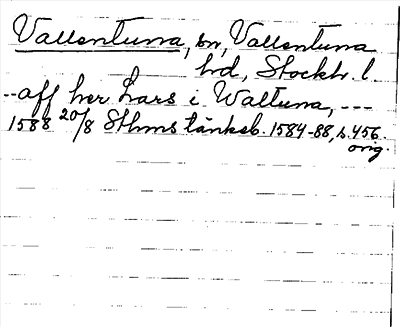 Vallentuna, sn, Vallentuna
hd, Stockh. l.
--aff her Lars i Waltuna, ---
1588 20/8 Sthms tänkeb. 1584-88, s. 456.
orig.